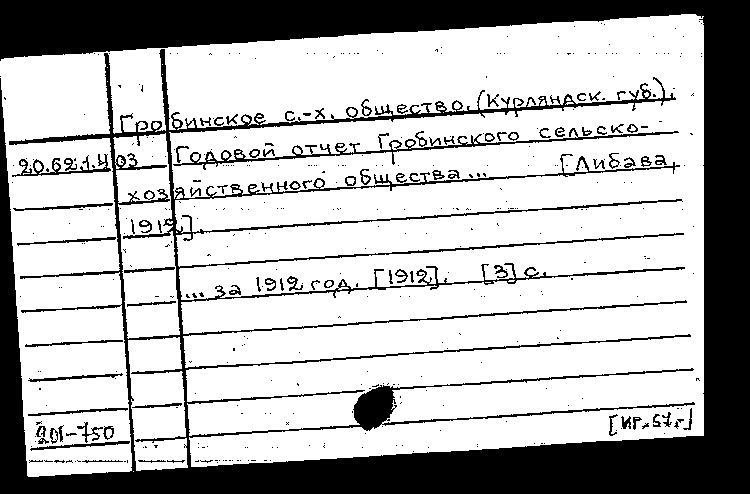 Гробинское с.-х. общество. (Курляндск. губ.).
20.62.1.403 Годовой отчет Гробинского сельско-
хозяйственного общества... [Либава,
1912].
... за 1912 год. [1912]. [3] с.
201-750
[ИГ.57г]